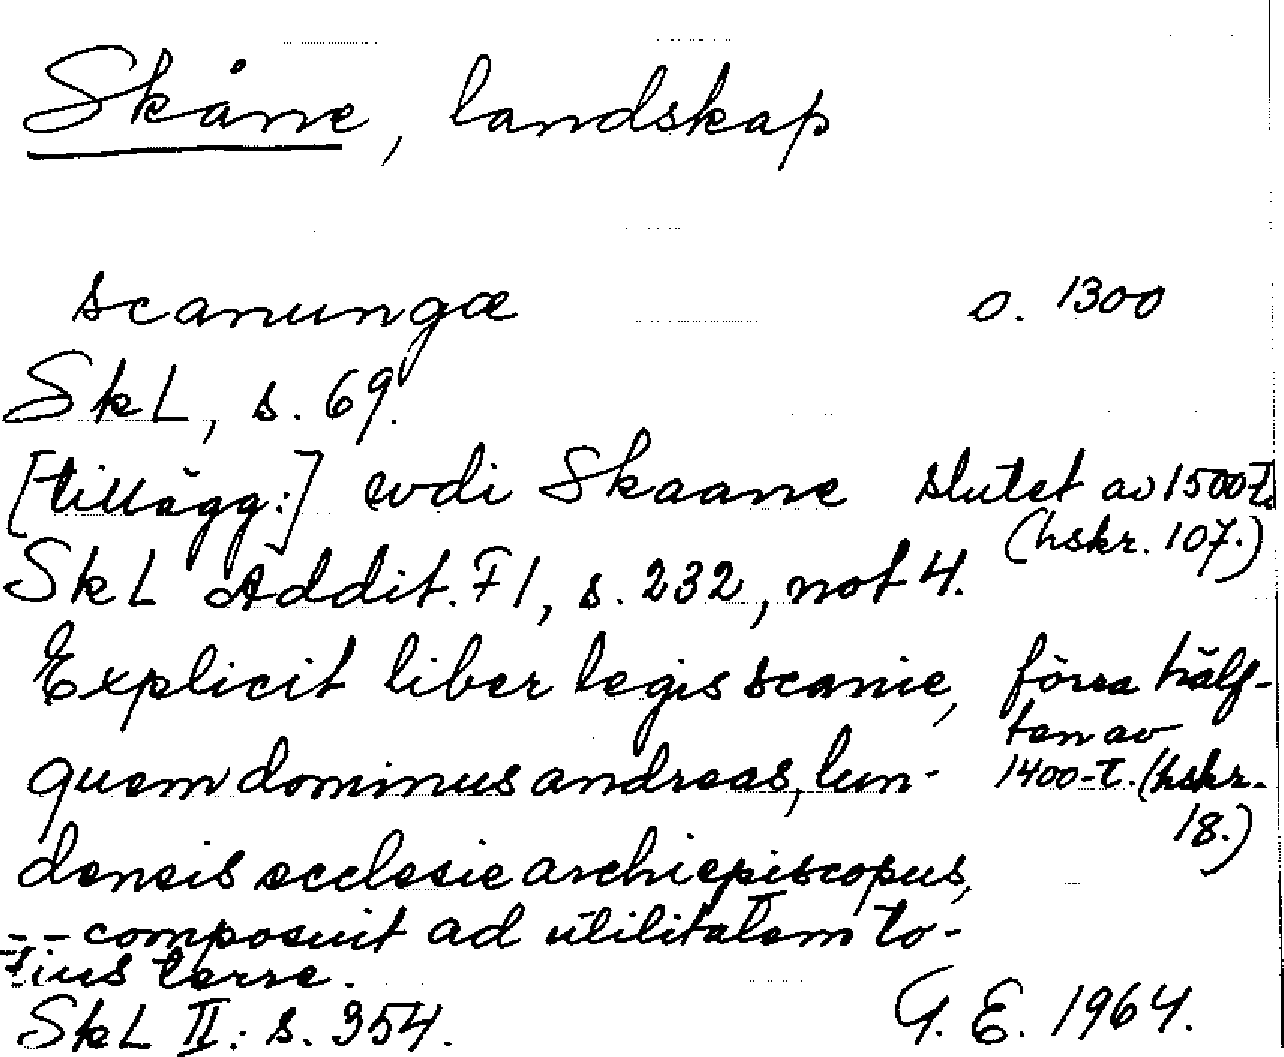 Skåne, landskap
scanungæ o. 1300
SkL, s. 69.
[tillägg:] wdi Skaane slutet av 1500-t.
(hskr. 107.)
SkL Addit. F1, s. 232, not 4.
Explicit liber legis scanie, förra hälf-
ten av
quem dominus andreas, lun- 1400-t. (hskr.
18.)
densis ecclesie archiepiscopus,
-- composuit ad utilitatem to-
tius terre.
SkL II: s. 354. G. E. 1964.